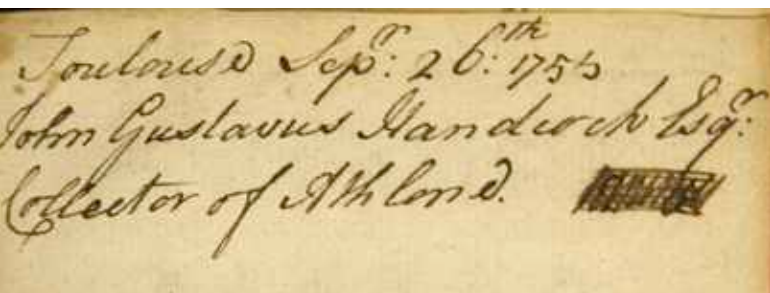 Toulouse Sepr: 26:th 1755
John Gustavus Handcock Esqr:
Collector of Athlone.